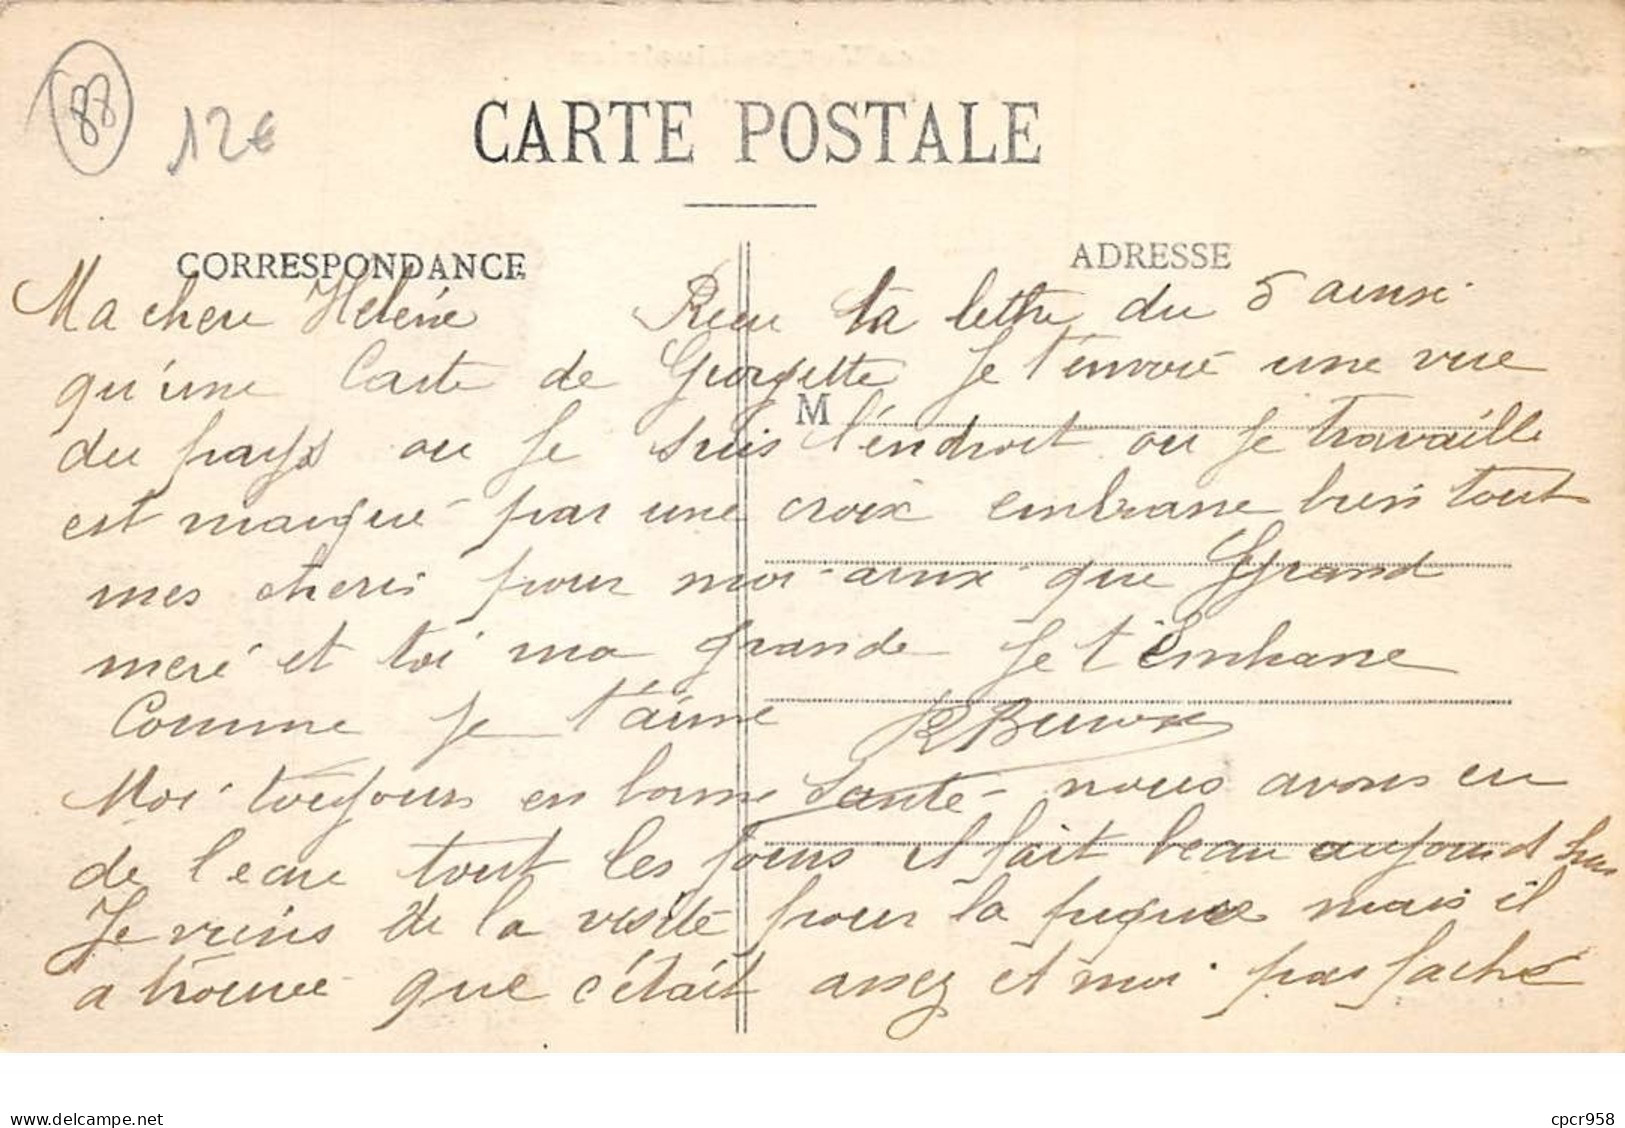 88
12€
CARTE POSTALE
CORRESPONDANCE
ADRESSE
M
Ma chere Heleine Recu ta lettre du 5 ainsi
qu'une Carte de Georgette Je t'envoie une vue
du pays ou Je suis l'endroit ou Je travaille
est marqué par une croix embrasse bien tout
mes cheris pour moi ainsi que Grand
meré et toi ma grande Je t'embrasse
Comme Je t'aime
Moi toujours en bonne Santé nous avons eu
de l'eau tout les Jours il fait beau aujourd hui
Je viens de la visite pour la piqure mais il
a trouvé que c'était assez et moi pas faché
delcampe.net
cpcr958